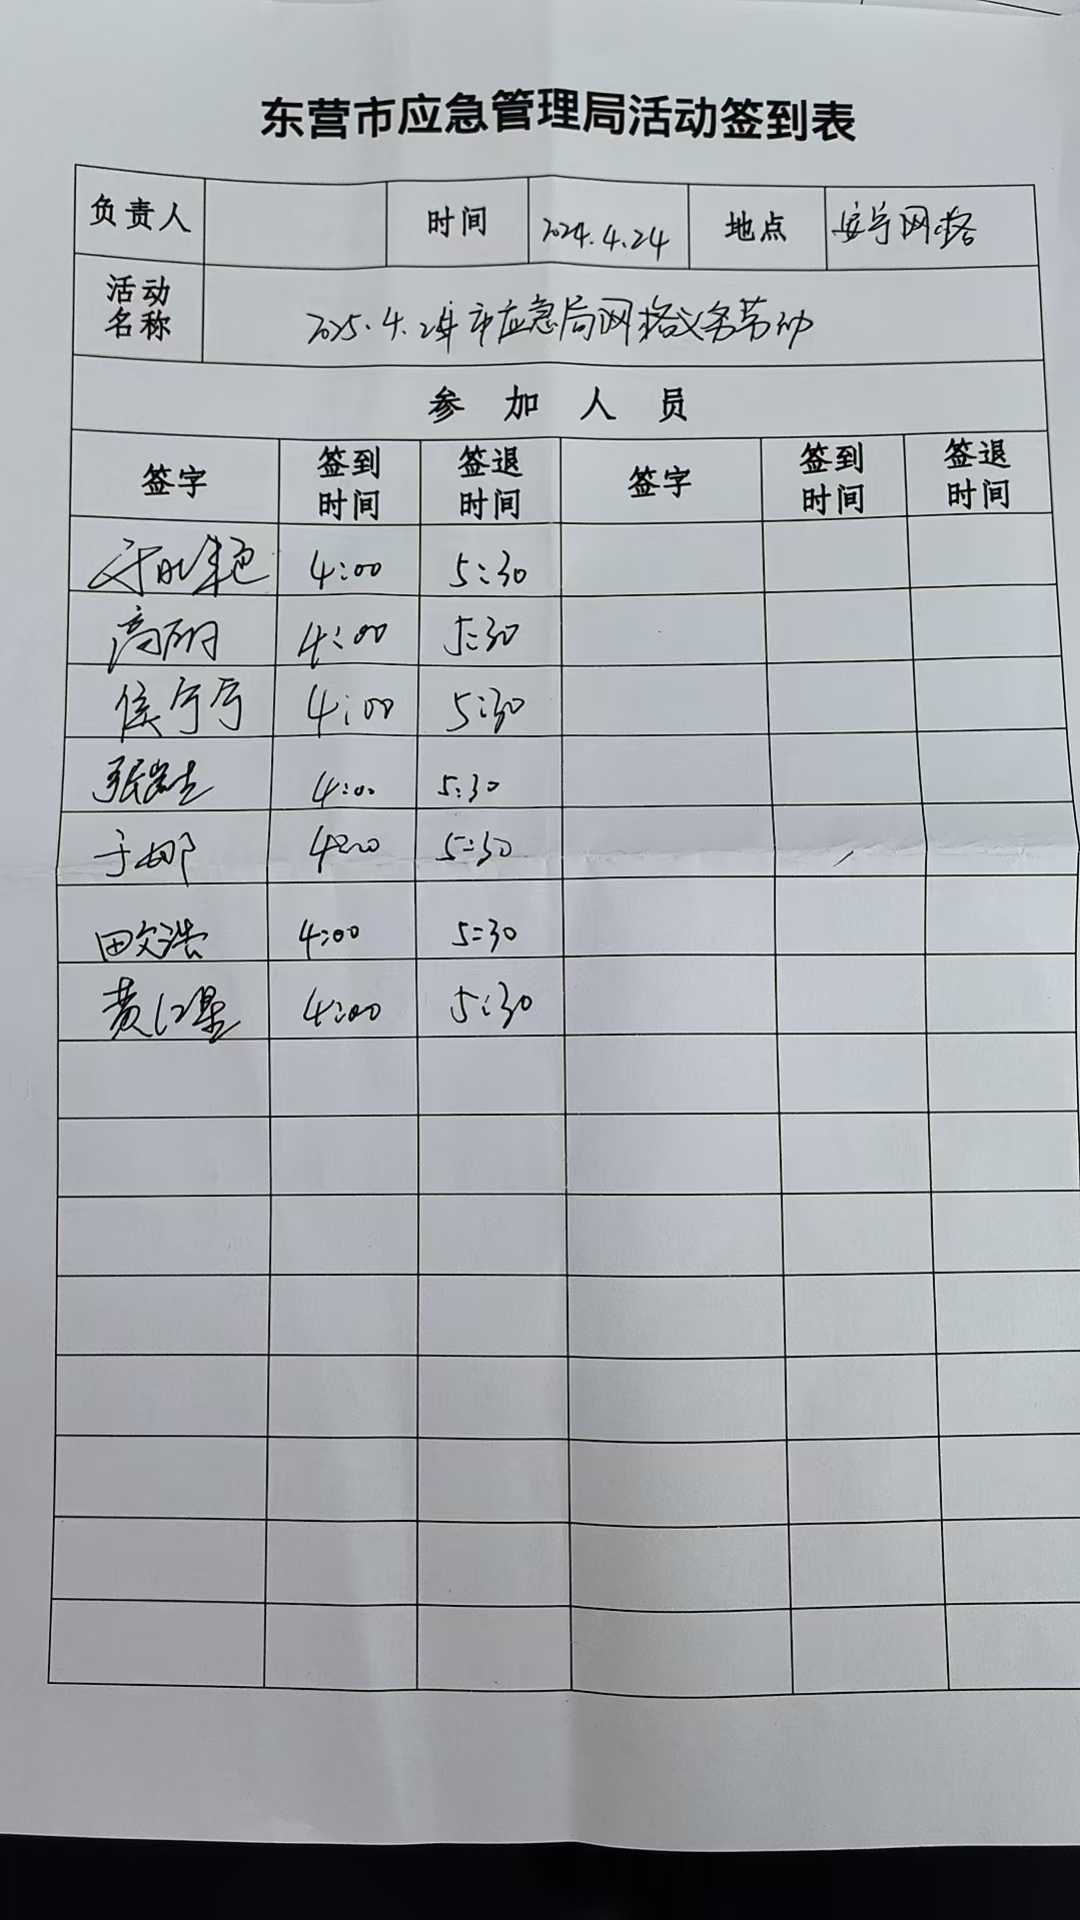 东营市应急管理局活动签到表
负责人 时间 2024.4.24 地点 安宁网格
活动名称 2025.4.24 市应急局网格义务劳动
参加人员
签字 签到时间 签退时间 签字 签到时间 签退时间
4:00 5:30
高丽 4:00 5:30
侯宁宁 4:00 5:30
张 4:00 5:30
于娜 4:00 5:30
田文浩 4:00 5:30
黄红星 4:00 5:30